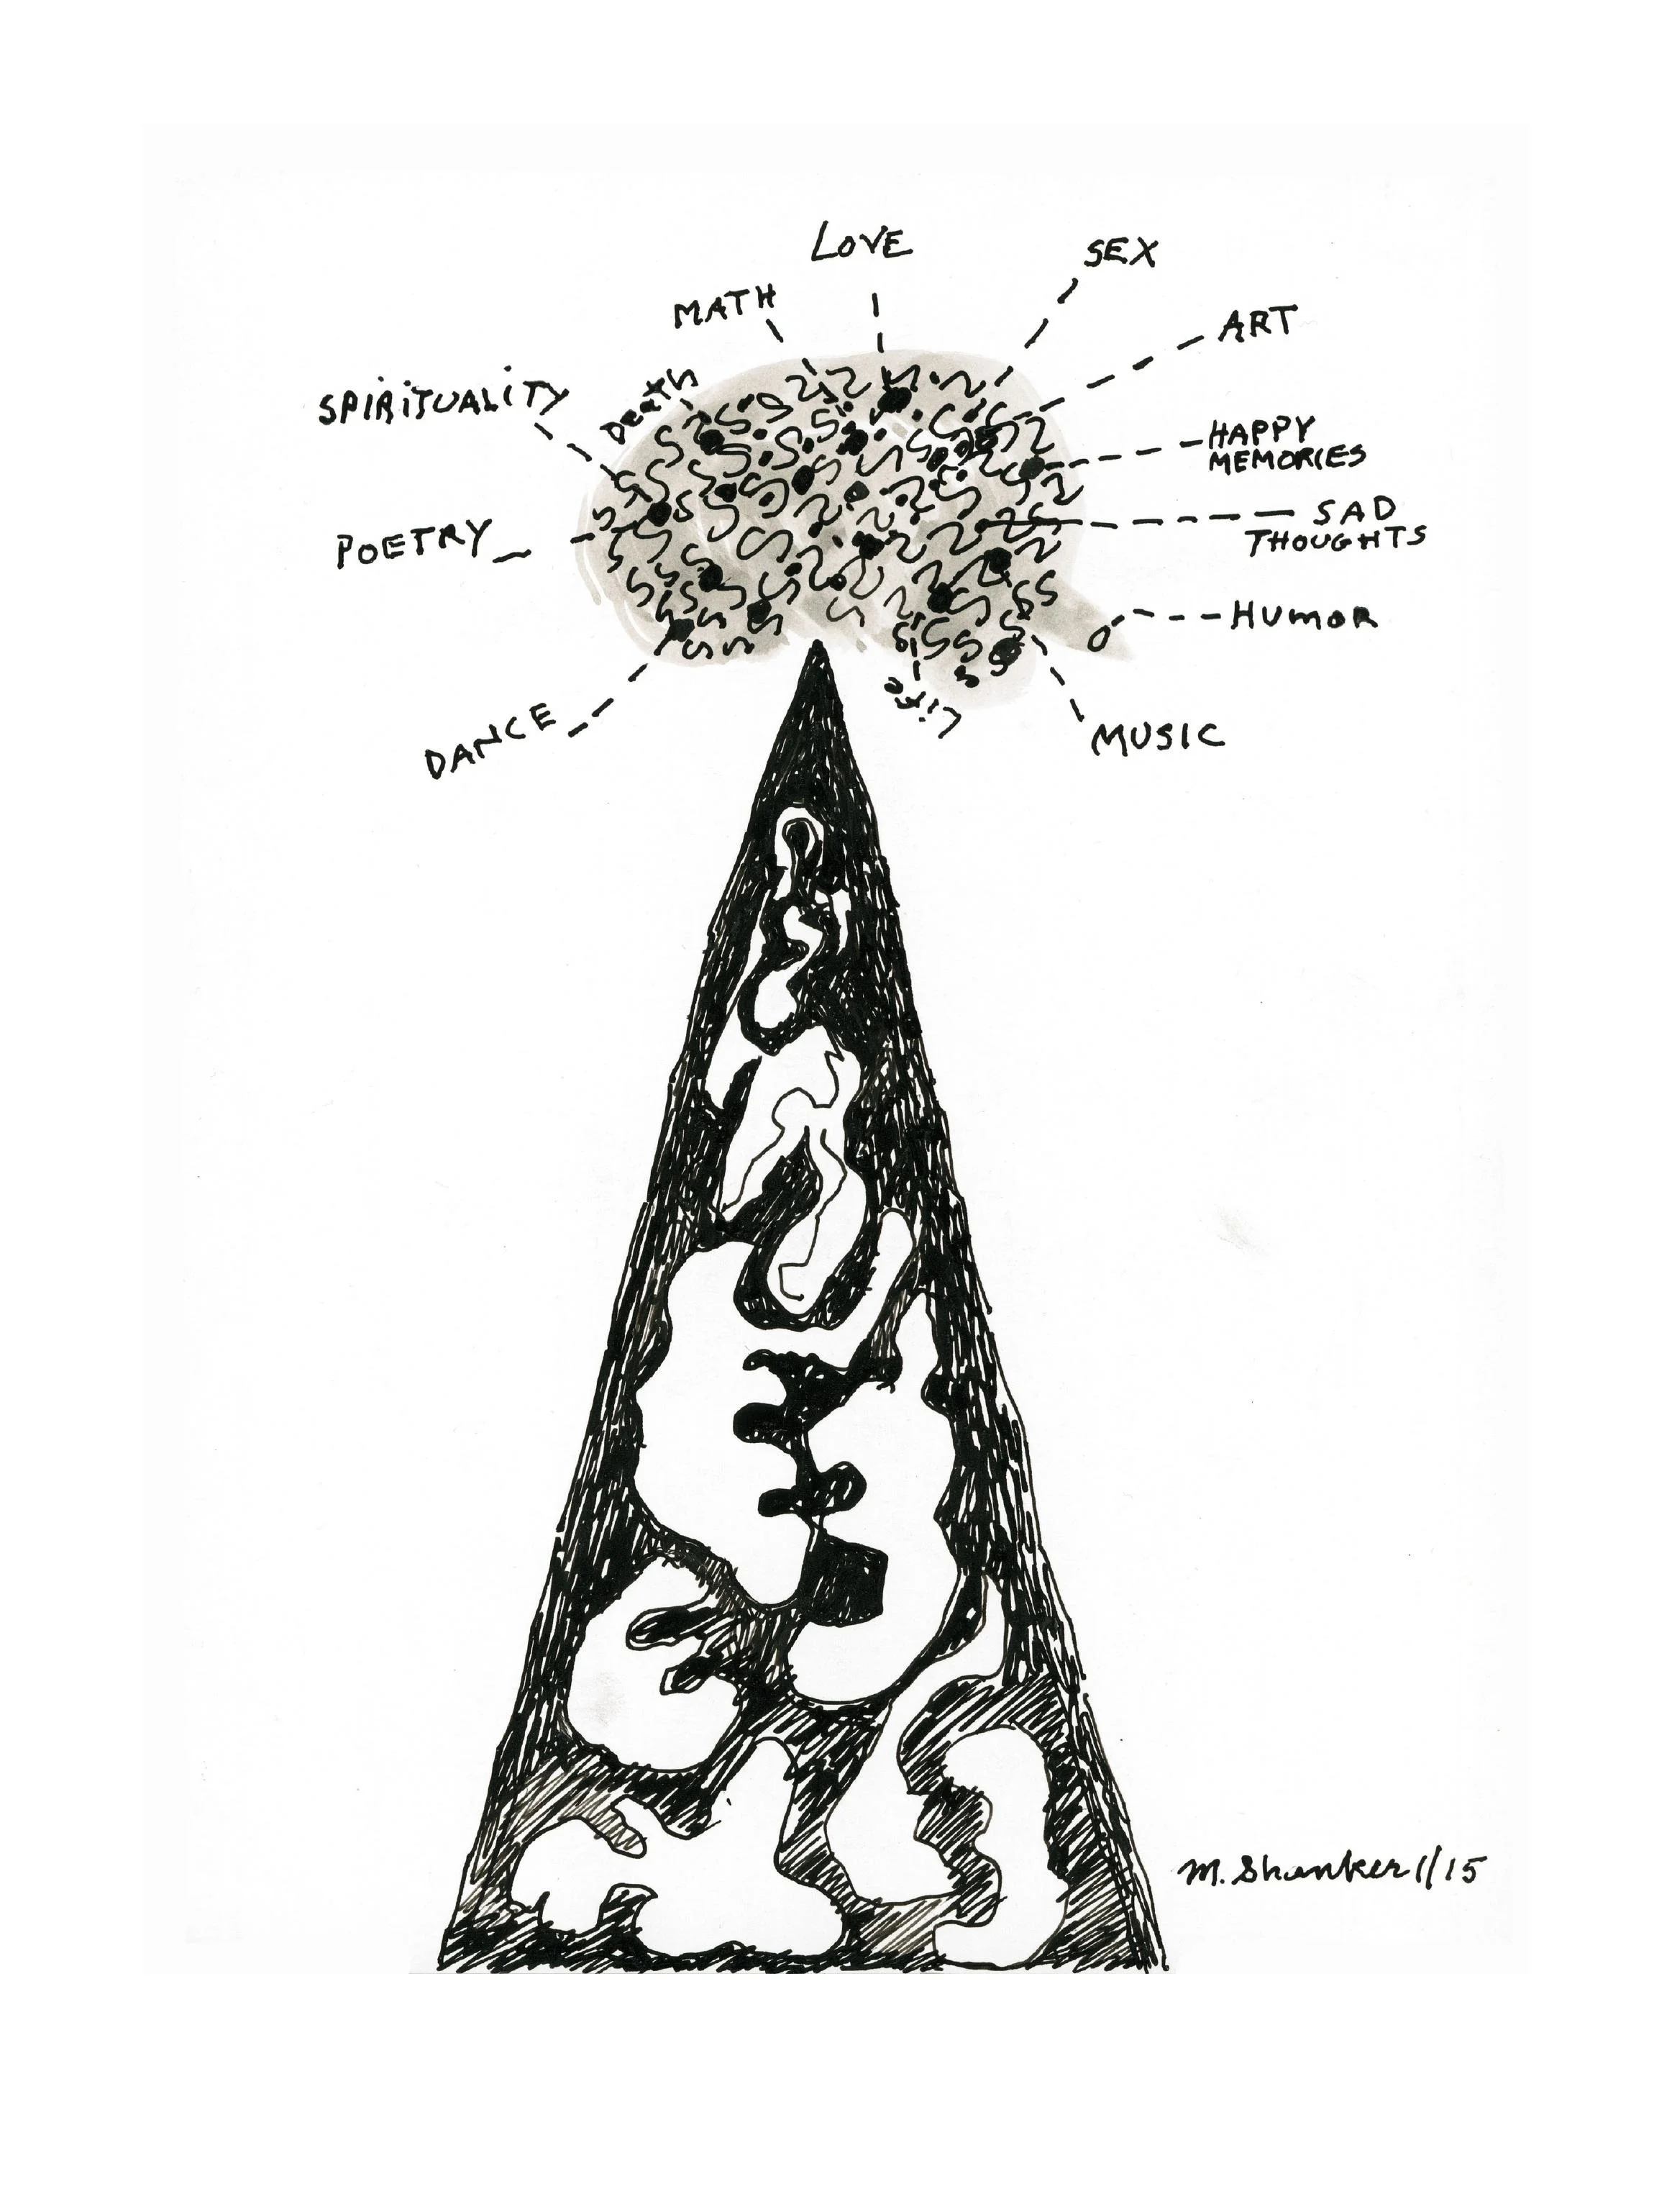 LOVE
SEX
MATH
ART
SPIRITUALITY
Death
HAPPY
MEMORIES
POETRY
SAD
THOUGHTS
HUMOR
Life
DANCE
MUSIC
M. Shanker 1/15